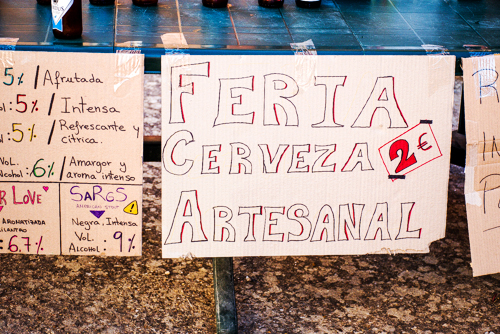 5% / Afrutada
: 5% / Intensa
: 5% / Refrescante y
cítrica.
Vol.
Alcohol: 6% / Amargor y
aroma intenso
R LOVE
AROMATIZADA
CILANTRO
: 6.7%
SARGS
AMERICAN STOUT
Negra, Intensa
VOL.
ALCOHOL: 9%
FERIA
CERVEZA
2€
ARTESANAL